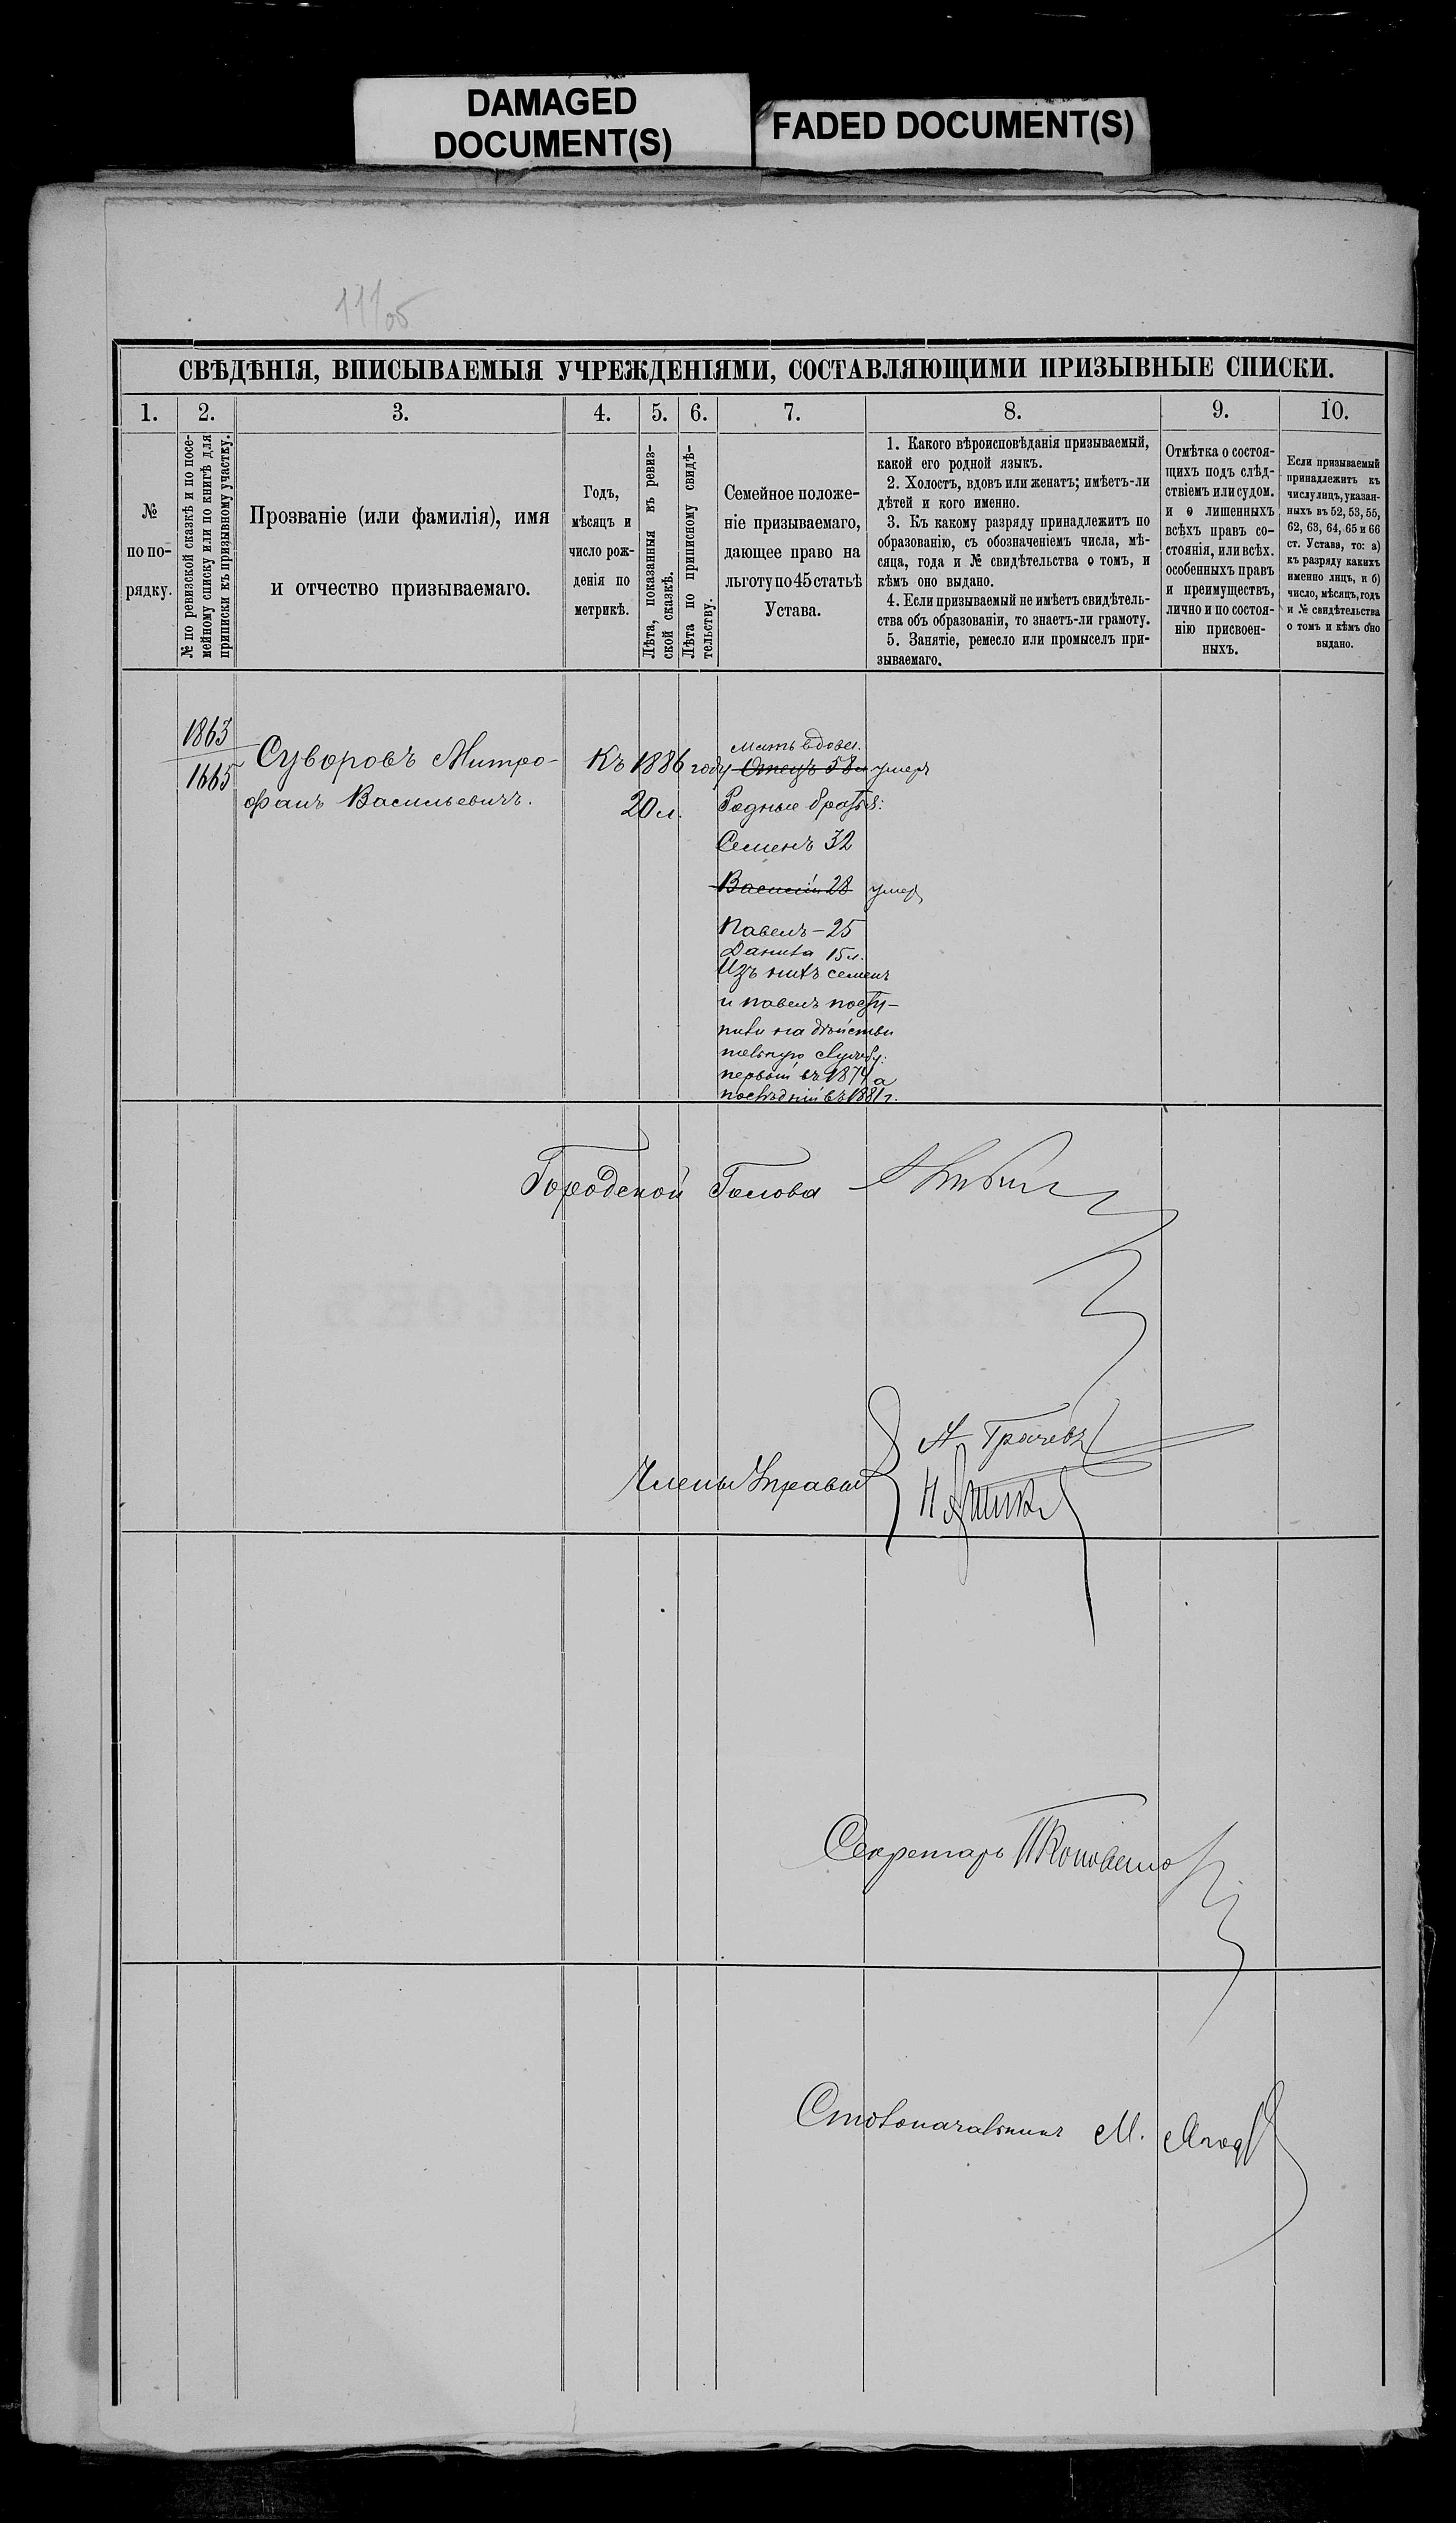 DAMAGED
DOCUMENT(S)
FADED DOCUMENT(S)
СВѢДѢНІЯ, ВПИСЫВАЕМЫЯ УЧРЕЖДЕНІЯМИ, СОСТАВЛЯЮЩИМИ ПРИЗЫВНЫЕ СПИСКИ.
1. 2. 3. 4. 5. 6. 7. 8. 9. 10.
№
по по-
рядку.
№ по ревизской сказкѣ и по посе-
мейному списку или по книгѣ для
приписки къ призывному участку.
Прозваніе (или фамилія), имя
и отчество призываемаго.
Годъ,
мѣсяцъ и
число рож-
денія по
метрикѣ.
Лѣта, показанныя въ ревиз-
ской сказкѣ.
Лѣта по приписному свидѣ-
тельству.
Семейное положе-
ніе призываемаго,
дающее право на
льготу по 45 статьѣ
Устава.
1. Какого вѣроисповѣданія призываемый,
какой его родной языкъ.
2. Холостъ, вдовъ или женатъ; имѣетъ-ли
дѣтей и кого именно.
3. Къ какому разряду принадлежитъ по
образованію, съ обозначеніемъ числа, мѣ-
сяца, года и № свидѣтельства о томъ, и
кѣмъ оно выдано.
4. Если призываемый не имѣетъ свидѣтель-
ства объ образованіи, то знаетъ-ли грамоту.
5. Занятіе, ремесло или промыселъ при-
зываемаго.
Отмѣтка о состоя-
щихъ подъ слѣд-
ствіемъ или судом.
и о лишенныхъ
всѣхъ правъ со-
стоянія, или всѣх.
особенныхъ правъ
и преимуществъ,
лично и по состоя-
нію присвоен-
ныхъ.
Если призываемый
принадлежитъ къ
числу лицъ, указан-
ныхъ въ 52, 53, 55,
62, 63, 64, 65 и 66
ст. Устава, то: а)
къ разряду какихъ
именно лицъ, и б)
число, мѣсяцъ, годъ
и № свидѣтельства
о томъ и кѣмъ оно
выдано.
1863
1665
Суворовъ Митро-
фанъ Васильевичъ.
Къ 1886 году
20 л.
Мать вдова.
Отецъ 58 л умеръ
Родные братья:
Семенъ 32
Василій 28 умеръ
Павелъ - 25
Данила 15 л.
Изъ нихъ семенъ
и павелъ посту-
пили на дѣйстви
тельную службу:
первый въ 1874 а
послѣдній въ 1881 г.
Городской Голова
Члены Управы
А Грачевъ
Секретарь П Коновало
Столоначальникъ М.